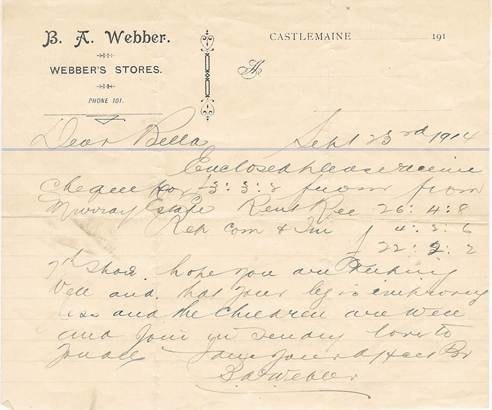 B. A. Webber.
WEBBER'S STORES.
PHONE 101.
CASTLEMAINE 191
Dear Bella Sept 23rd 1914
Enclosed please receive
Cheque for 3 : 3 : 2 from
Murray Estate Rent Rec 26 : 4 : 8
Rep Com & Ins 4 : 2 : 6
22 : 2 : 2
7th Share. hope you are keeping
well and that your leg is improving
and the children are well
and join in sending love to
you all
B.A. Webber